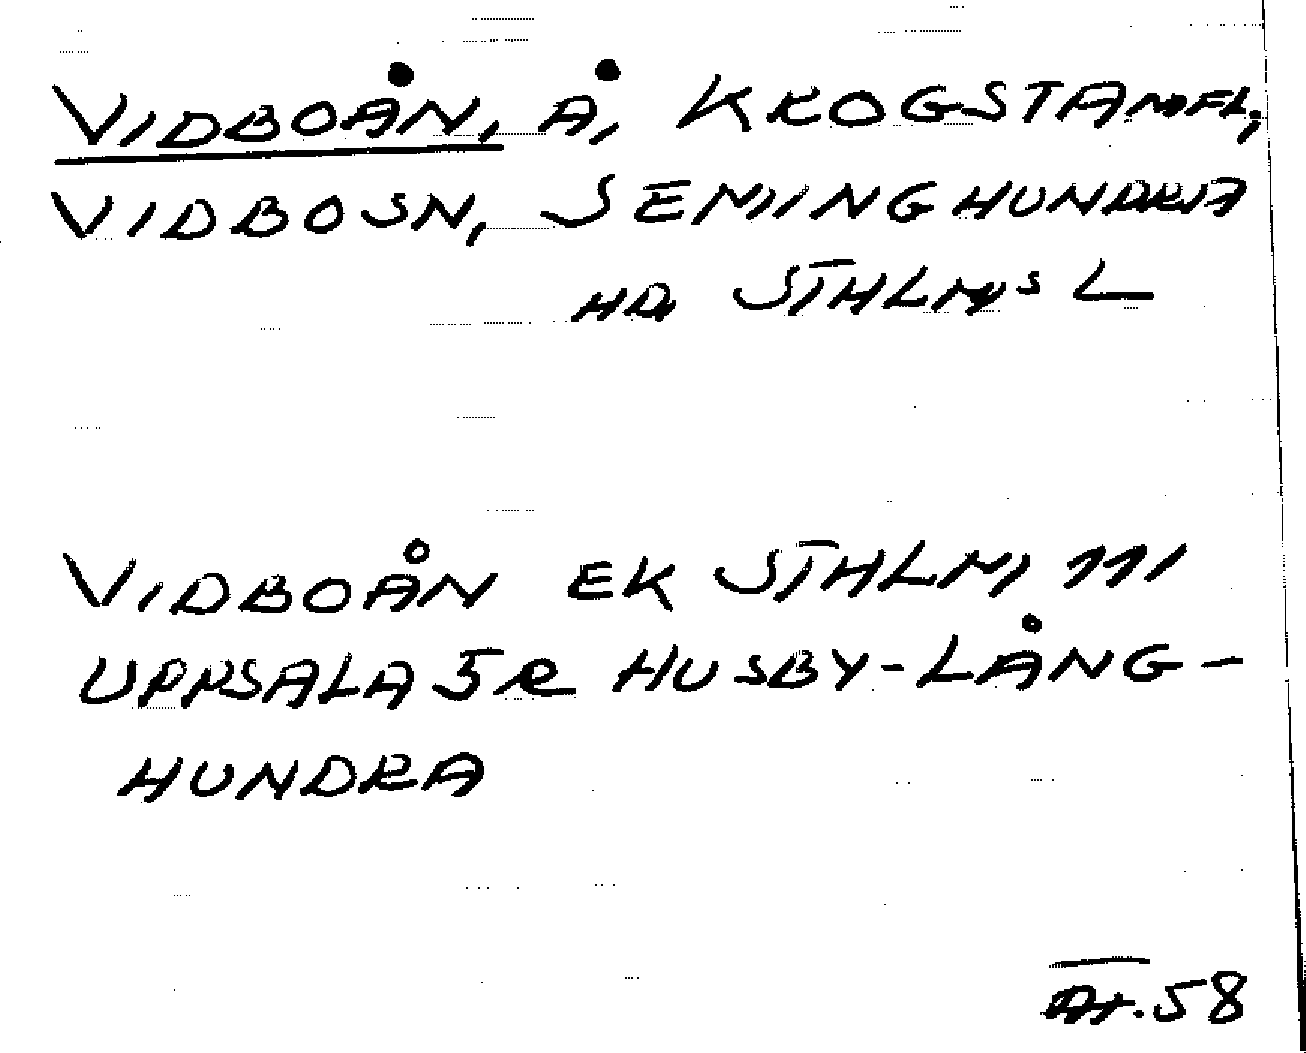 VIDBOÅN, Å, KROGSTA M FL,
VIDBO SN, SEMINGHUNDRA
HD, STHLMS L
VIDBOÅN EK STHLM, 111
UPPSALA 5R HUSBY-LÅNG-
HUNDRA
58